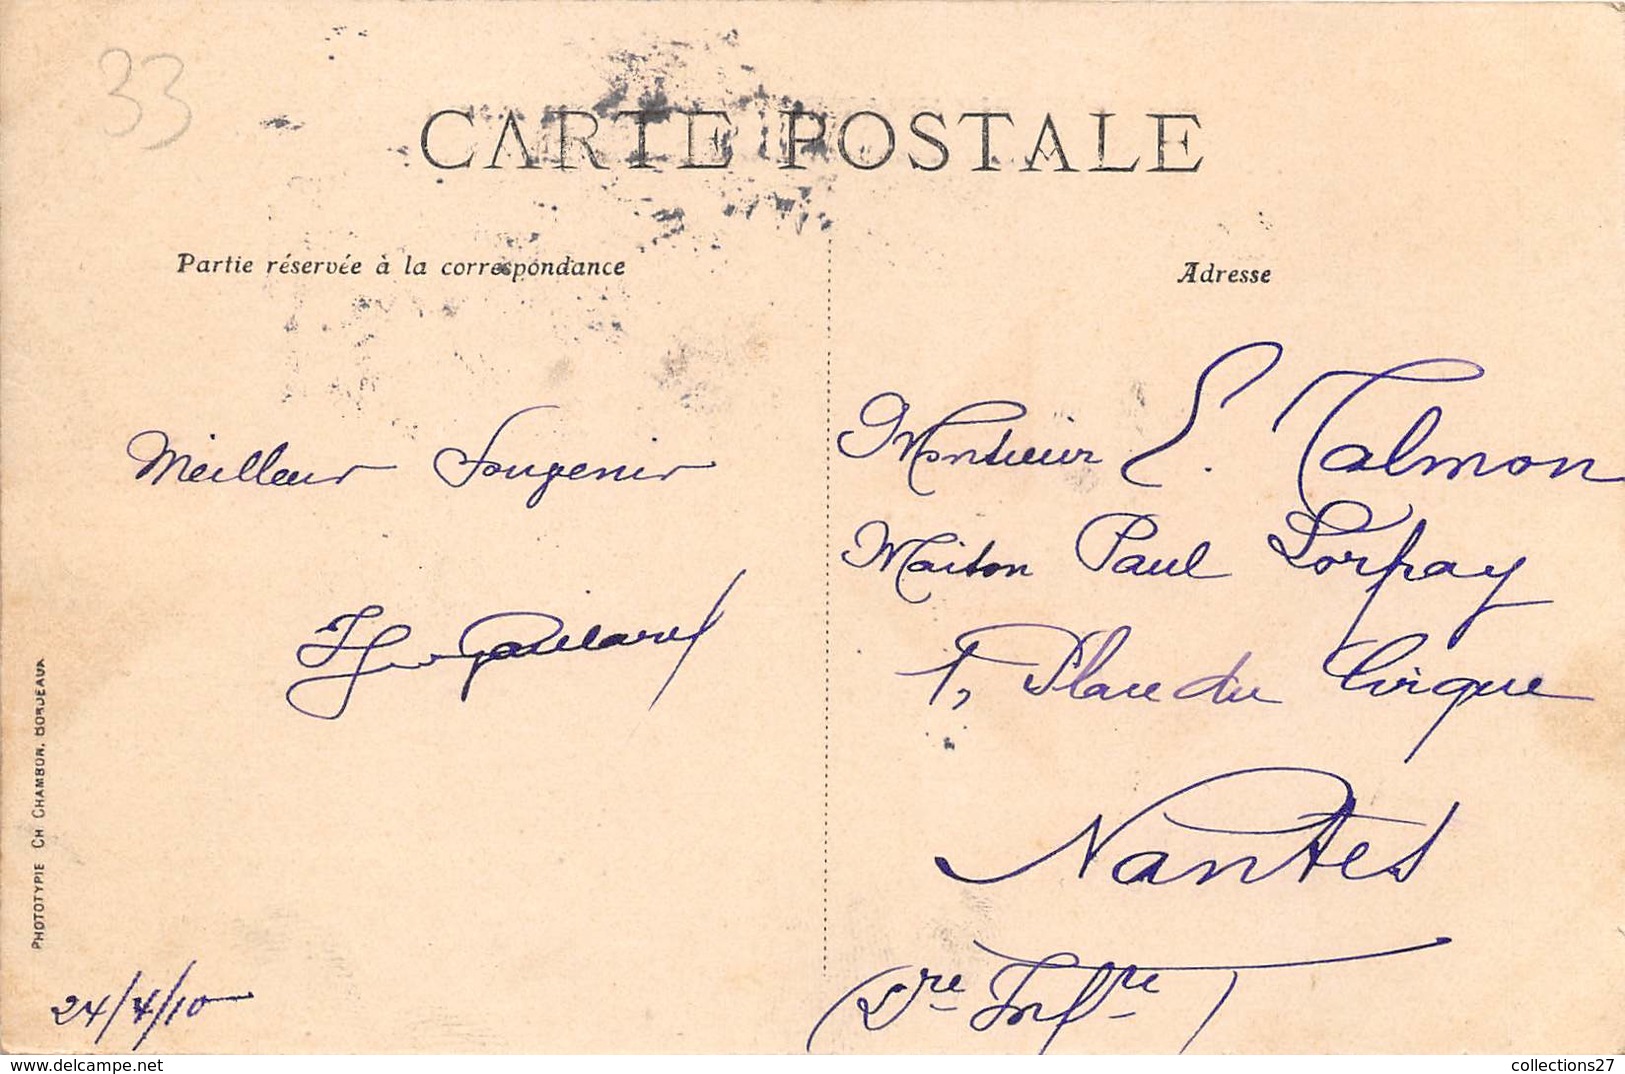 33
CARTE POSTALE
Partie réservée à la correspondance
Adresse
Meilleur Souvenir
Gaillard
24/4/10
PHOTOTYPIE CH. CHAMBON, BORDEAUX
Monsieur E. Talmon
Maison Paul
1, Place du Cirque
Nantes
(Lre Infre)
collections27